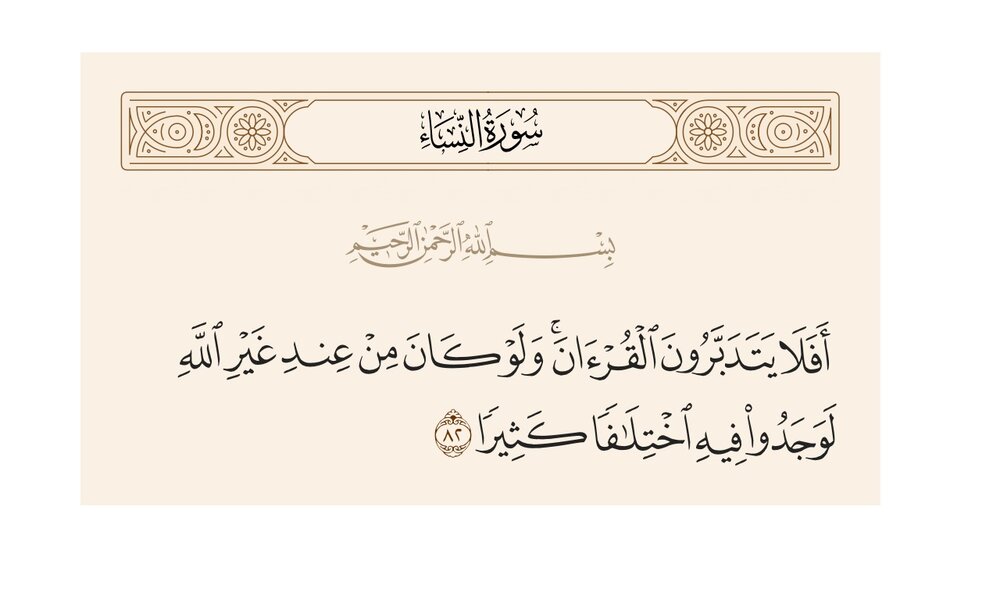 سُورَةُ النِّسَاءِ
بِسْمِ ٱللَّهِ ٱلرَّحْمَٰنِ ٱلرَّحِيمِ
أَفَلَا يَتَدَبَّرُونَ ٱلْقُرْءَانَ ۚ وَلَوْ كَانَ مِنْ عِندِ غَيْرِ ٱللَّهِ
لَوَجَدُوا۟ فِيهِ ٱخْتِلَـٰفًا كَثِيرًا ٨٢